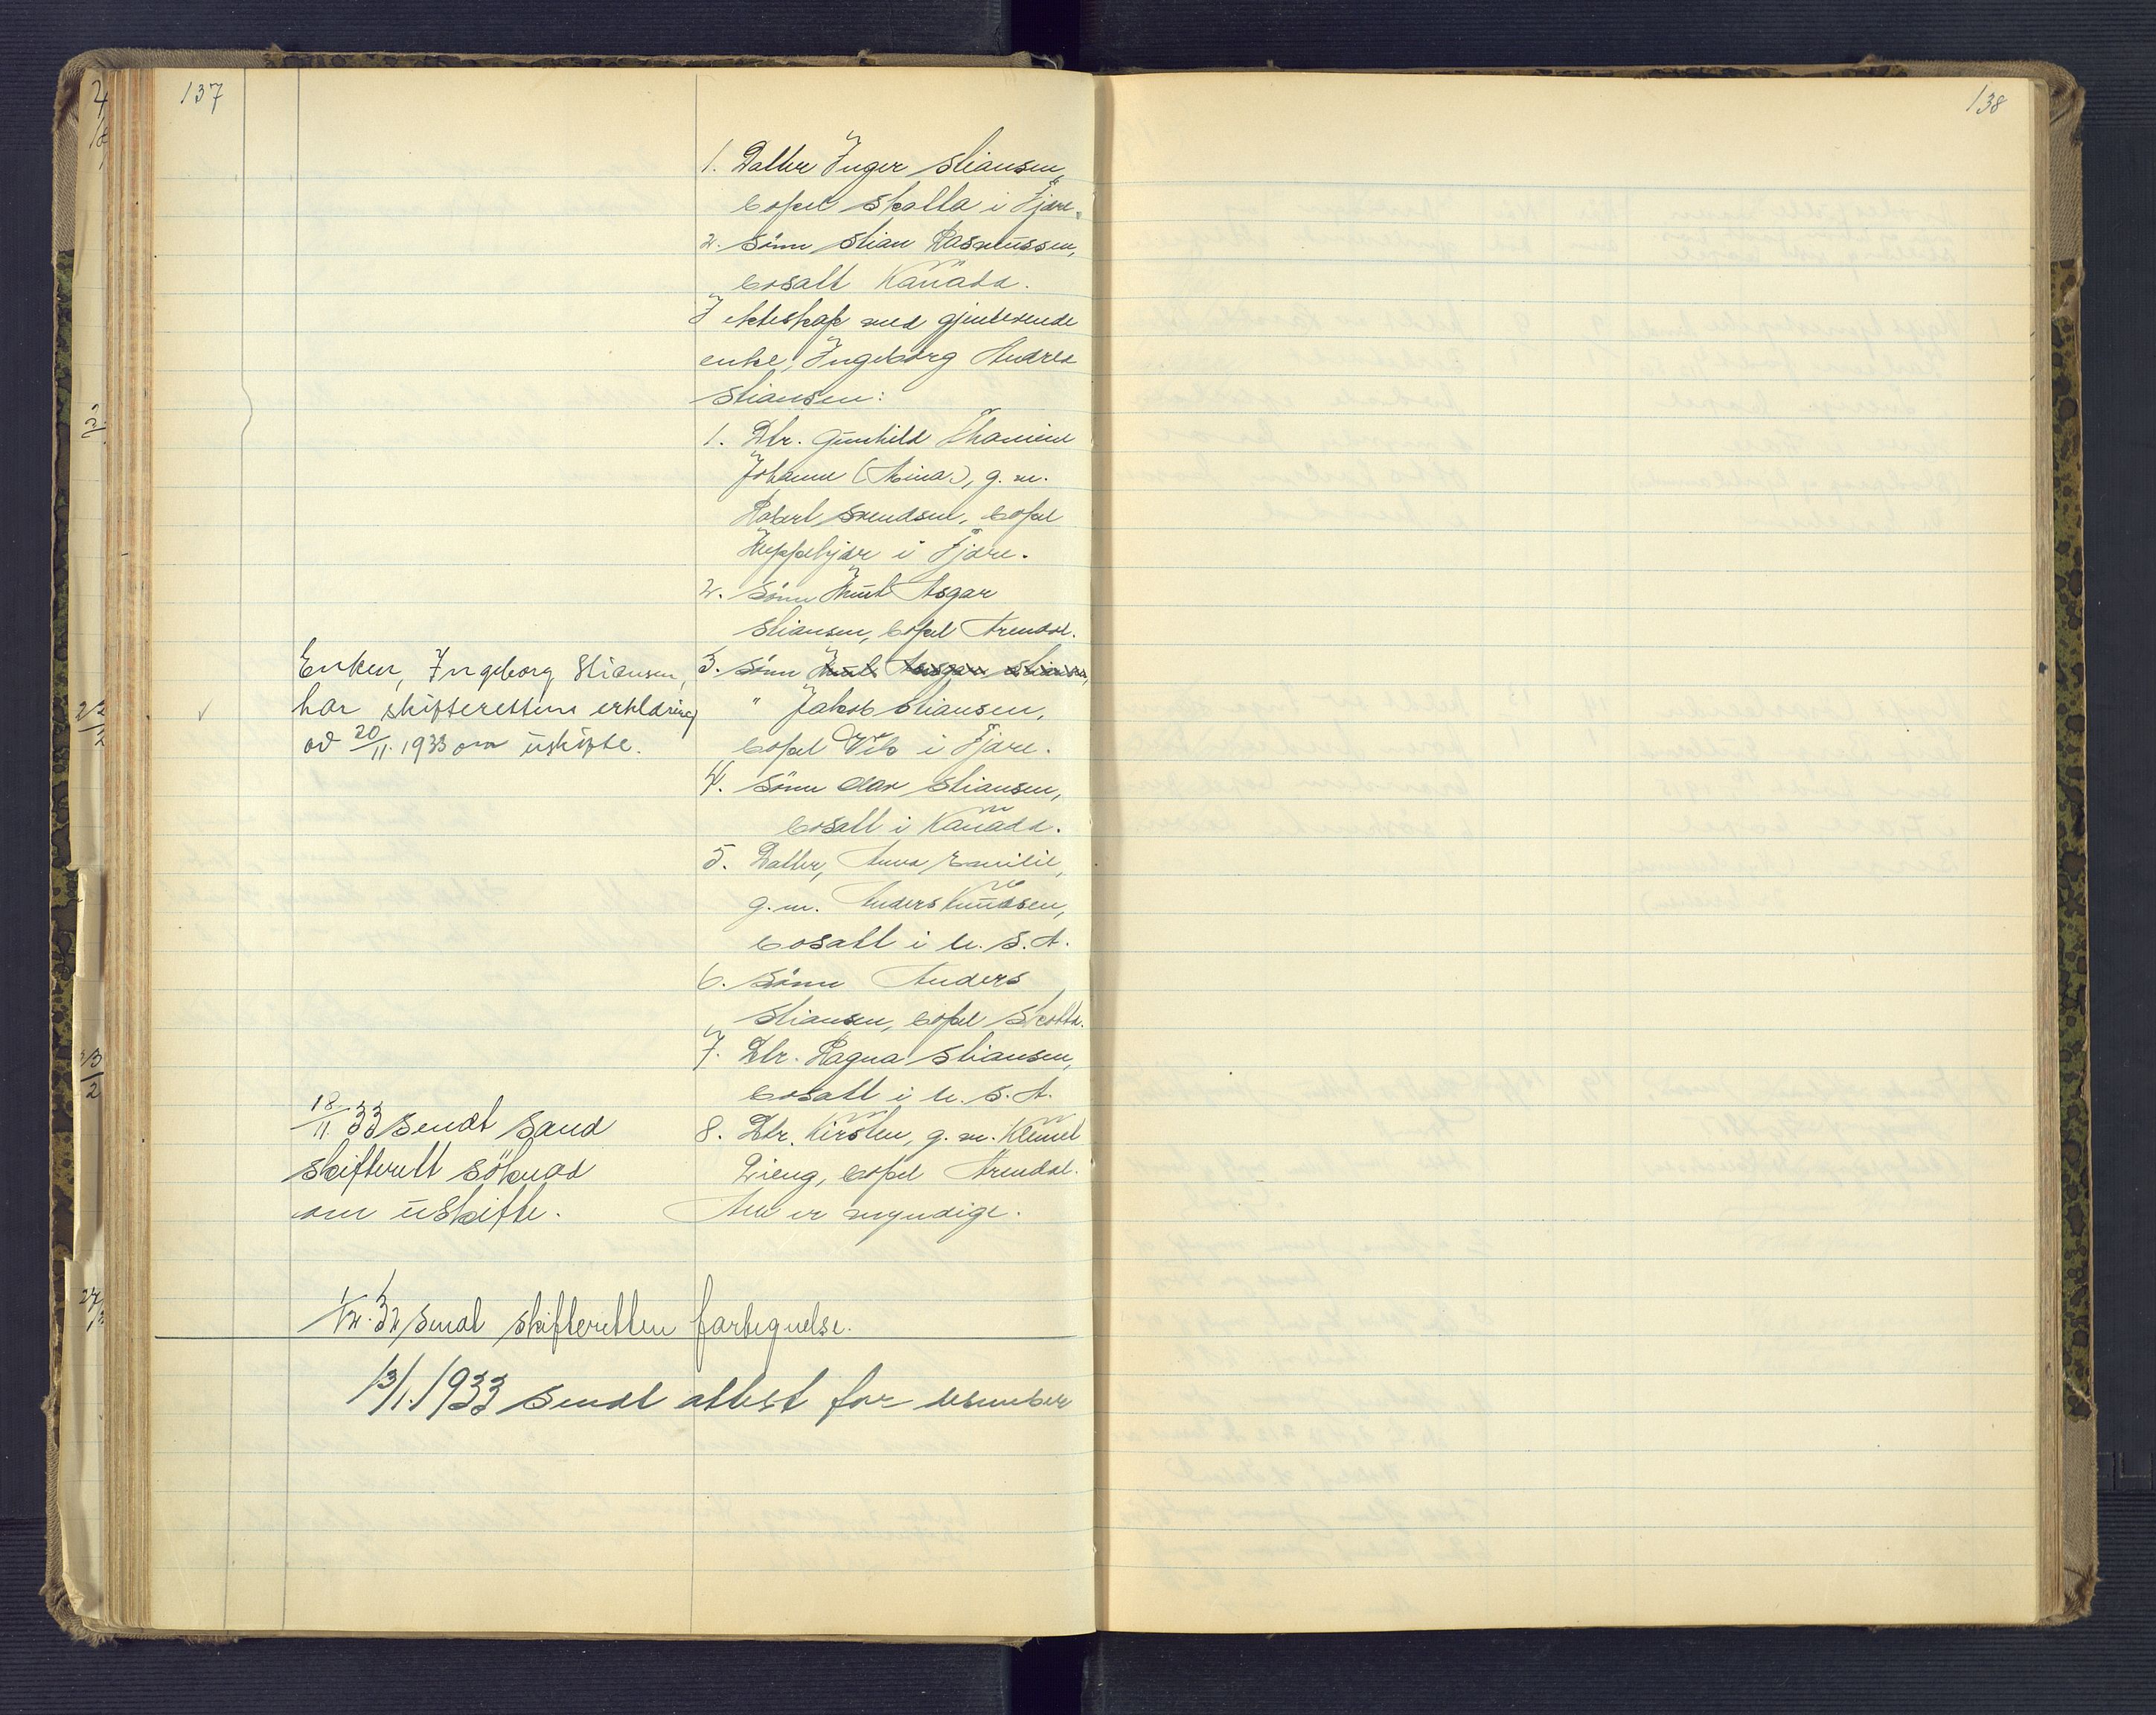 137
1. Datter Inger Stiansen,
bopel Skatta i Fjære.
2. Sønn Stian Rasmussen,
bosatt Kanada.
I ekteskap med gjenlevende
enke, Ingeborg Andrea
Stiansen:
1. Dtr. Gunhild Thamine
Johanne (Mina), g. m.
Robert Svendsen, bopel
i Fjære.
2. Sønn Knut Asgar
Stiansen, bopel Arendal.
3. Sønn Knut Aasgar Stiansen,
" Jakob Stiansen,
bopel Vik i Fjære.
4. Sønn Olav Stiansen,
bosatt i Kanada.
5. Datter, Anna Emilie,
g. m. Anders Knudsen,
bosatt i U. S. A.
6. Sønn Anders
Stiansen, bopel Skatta.
7. Dtr. Ragna Stiansen,
bosatt i U. S. A.
8. Dtr. Kirsten, g. m. Klemet
bopel Arendal.
Alle er myndige.
Enken, Ingeborg Stiansen,
har skifterettens erklæring
av 20/11.1933 om uskifte.
18/11.33 sendt Sand
skifterett søknad
om uskifte.
1/12.32 sendt skifteretten fortegnelse.
13/1.1933 sendt attest for desember
138